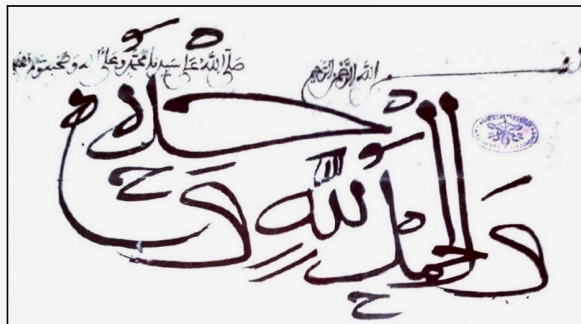 بسم الله الرحمن الرحيم صلى الله على سيدنا محمد وعلى آله وصحبه وسلم
والحمد لله وحده